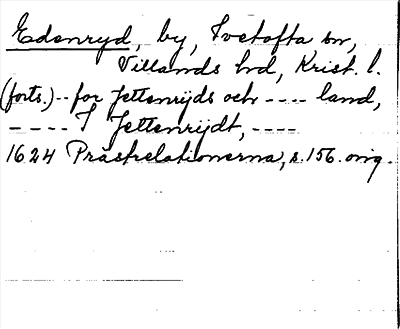 Edenryd, by, Ivetofta sn,
Villands hd, Krist. l.
(forts.) -- for Jettenrijds och ---- land,
---- I Jettenrijdt, ----
1624 Prästrelationerna, s. 156. orig.